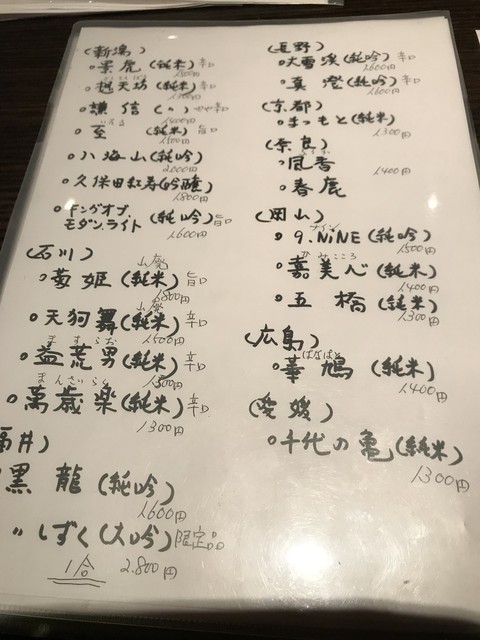 (新潟)
○景虎(純米)辛口
1,500円
○越天坊(純米)辛口
1,500円
○謙信(〃)やや辛口
1,400円
○至(純米)旨口
1,500円
○八海山(純吟)
2,000円
○久保田紅寿(吟醸)
1,800円
○キングオブ.
モダン.ライト(純吟)旨口
1,600円
(石川)
山廃
○菊姫(純米)旨口
1,800円
山廃
○天狗舞(純米)辛口
1,500円
ますらお
○益荒男(純米)辛口
1,500円
まんざいらく
○萬歳楽(純米)辛口
1300円
福井)
黒龍(純吟)
1,600円
〃しずく(大吟)限定品
1合 2.800円
(長野)
○大雪渓(純吟)辛口
1,600円
○真澄(純吟)辛口
1,600円
(京都)
○まつもと(純米)
1300円
(奈良)
○風香
1,400円
○春鹿
(岡山)
ナイン
○9.NiNE(純吟)
1,500円
かみこころ
○嘉美心(純米)
1,400円
○五橋(純米)
1,300円
(広島)
はなはと
○華鳩(純米)
1,400円
(愛媛)
○千代の亀(純米)
1300円